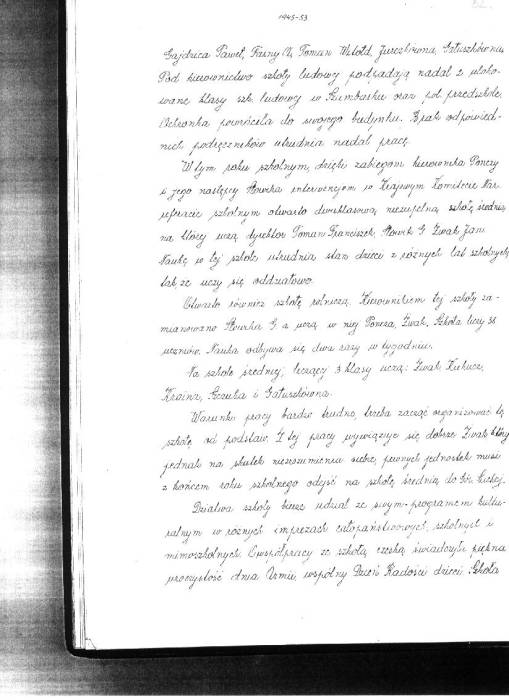 1945-53
Gajdzica Paweł, Farny A, Toman Witold, Jurczkowa, Gałuszkówna,
Pod kierownictwo szkoły ludowej podpadają nadal 2 uloko-
wane klasy szk. ludowej w Gumbasku oraz pol. przedszkole.
Ochronka powróciła do swojego budynku. Brak odpowied-
nich podręczników utrudnia nadal pracę.
W tym roku szkolnym, dzięki zabiegom kierownika Ponczy
i jego następcy Słowika interwencjom w Krajowym Komitecie Nar.
referacie szkolnym otwarto dwuklasową niezupełną szkołę średnią
na której uczą dyrektor Toman Franciszek, Słowik G. Żwak Jan.
Naukę w tej szkole utrudnia stan dzieci z różnych lat szkolnych,
tak że uczy się oddziałowo.
Otwarto również szkołę rolniczą. Kierownikiem tej szkoły za-
mianowano Słowika G. a uczą w niej Poncza, Żwak. Szkoła liczy 38
uczniów. Nauka odbywa się dwa razy w tygodniu.
Na szkole średniej, liczącej 3 klasy uczą: Żwak, Kukucz,
Kraina, Szczuka i Gałuszkówna.
Warunki pracy bardzo trudne, trzeba zacząć organizować tę
szkołę od podstaw. Z tej pracy wywiązuje się dobrze Żwak który
jednak na skutek niezrozumienia siebie, pewnych jednostek musi
z końcem roku szkolnego odejść na szkołę średnią do Suchej.
Dziatwa szkoły bierze udział ze swym programem kultu-
ralnym w różnych imprezach całopaństwowych, szkolnych i
mimoszkolnych. O współpracy ze szkołą czeską świadczyła piękna
uroczystość dnia Armii, wspólny Dzień Radości dzieci. Szkoła